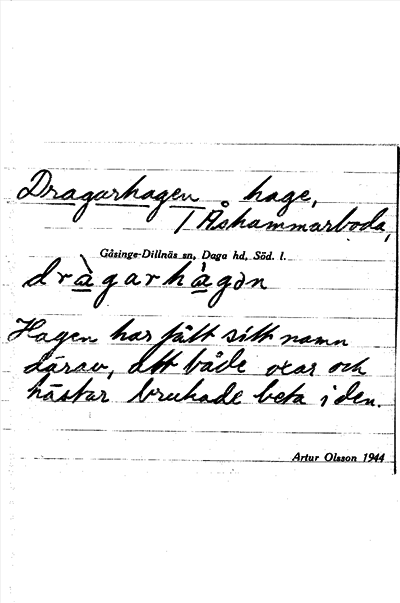 Dragarhagen hage,
/ Åshammarboda,
Gåsinge-Dillnäs sn, Daga hd, Söd. l.
dràgarhàgən
Hagen har fått sitt namn
därav, att både oxar och
hästar brukade beta i den.
Artur Olsson 1944